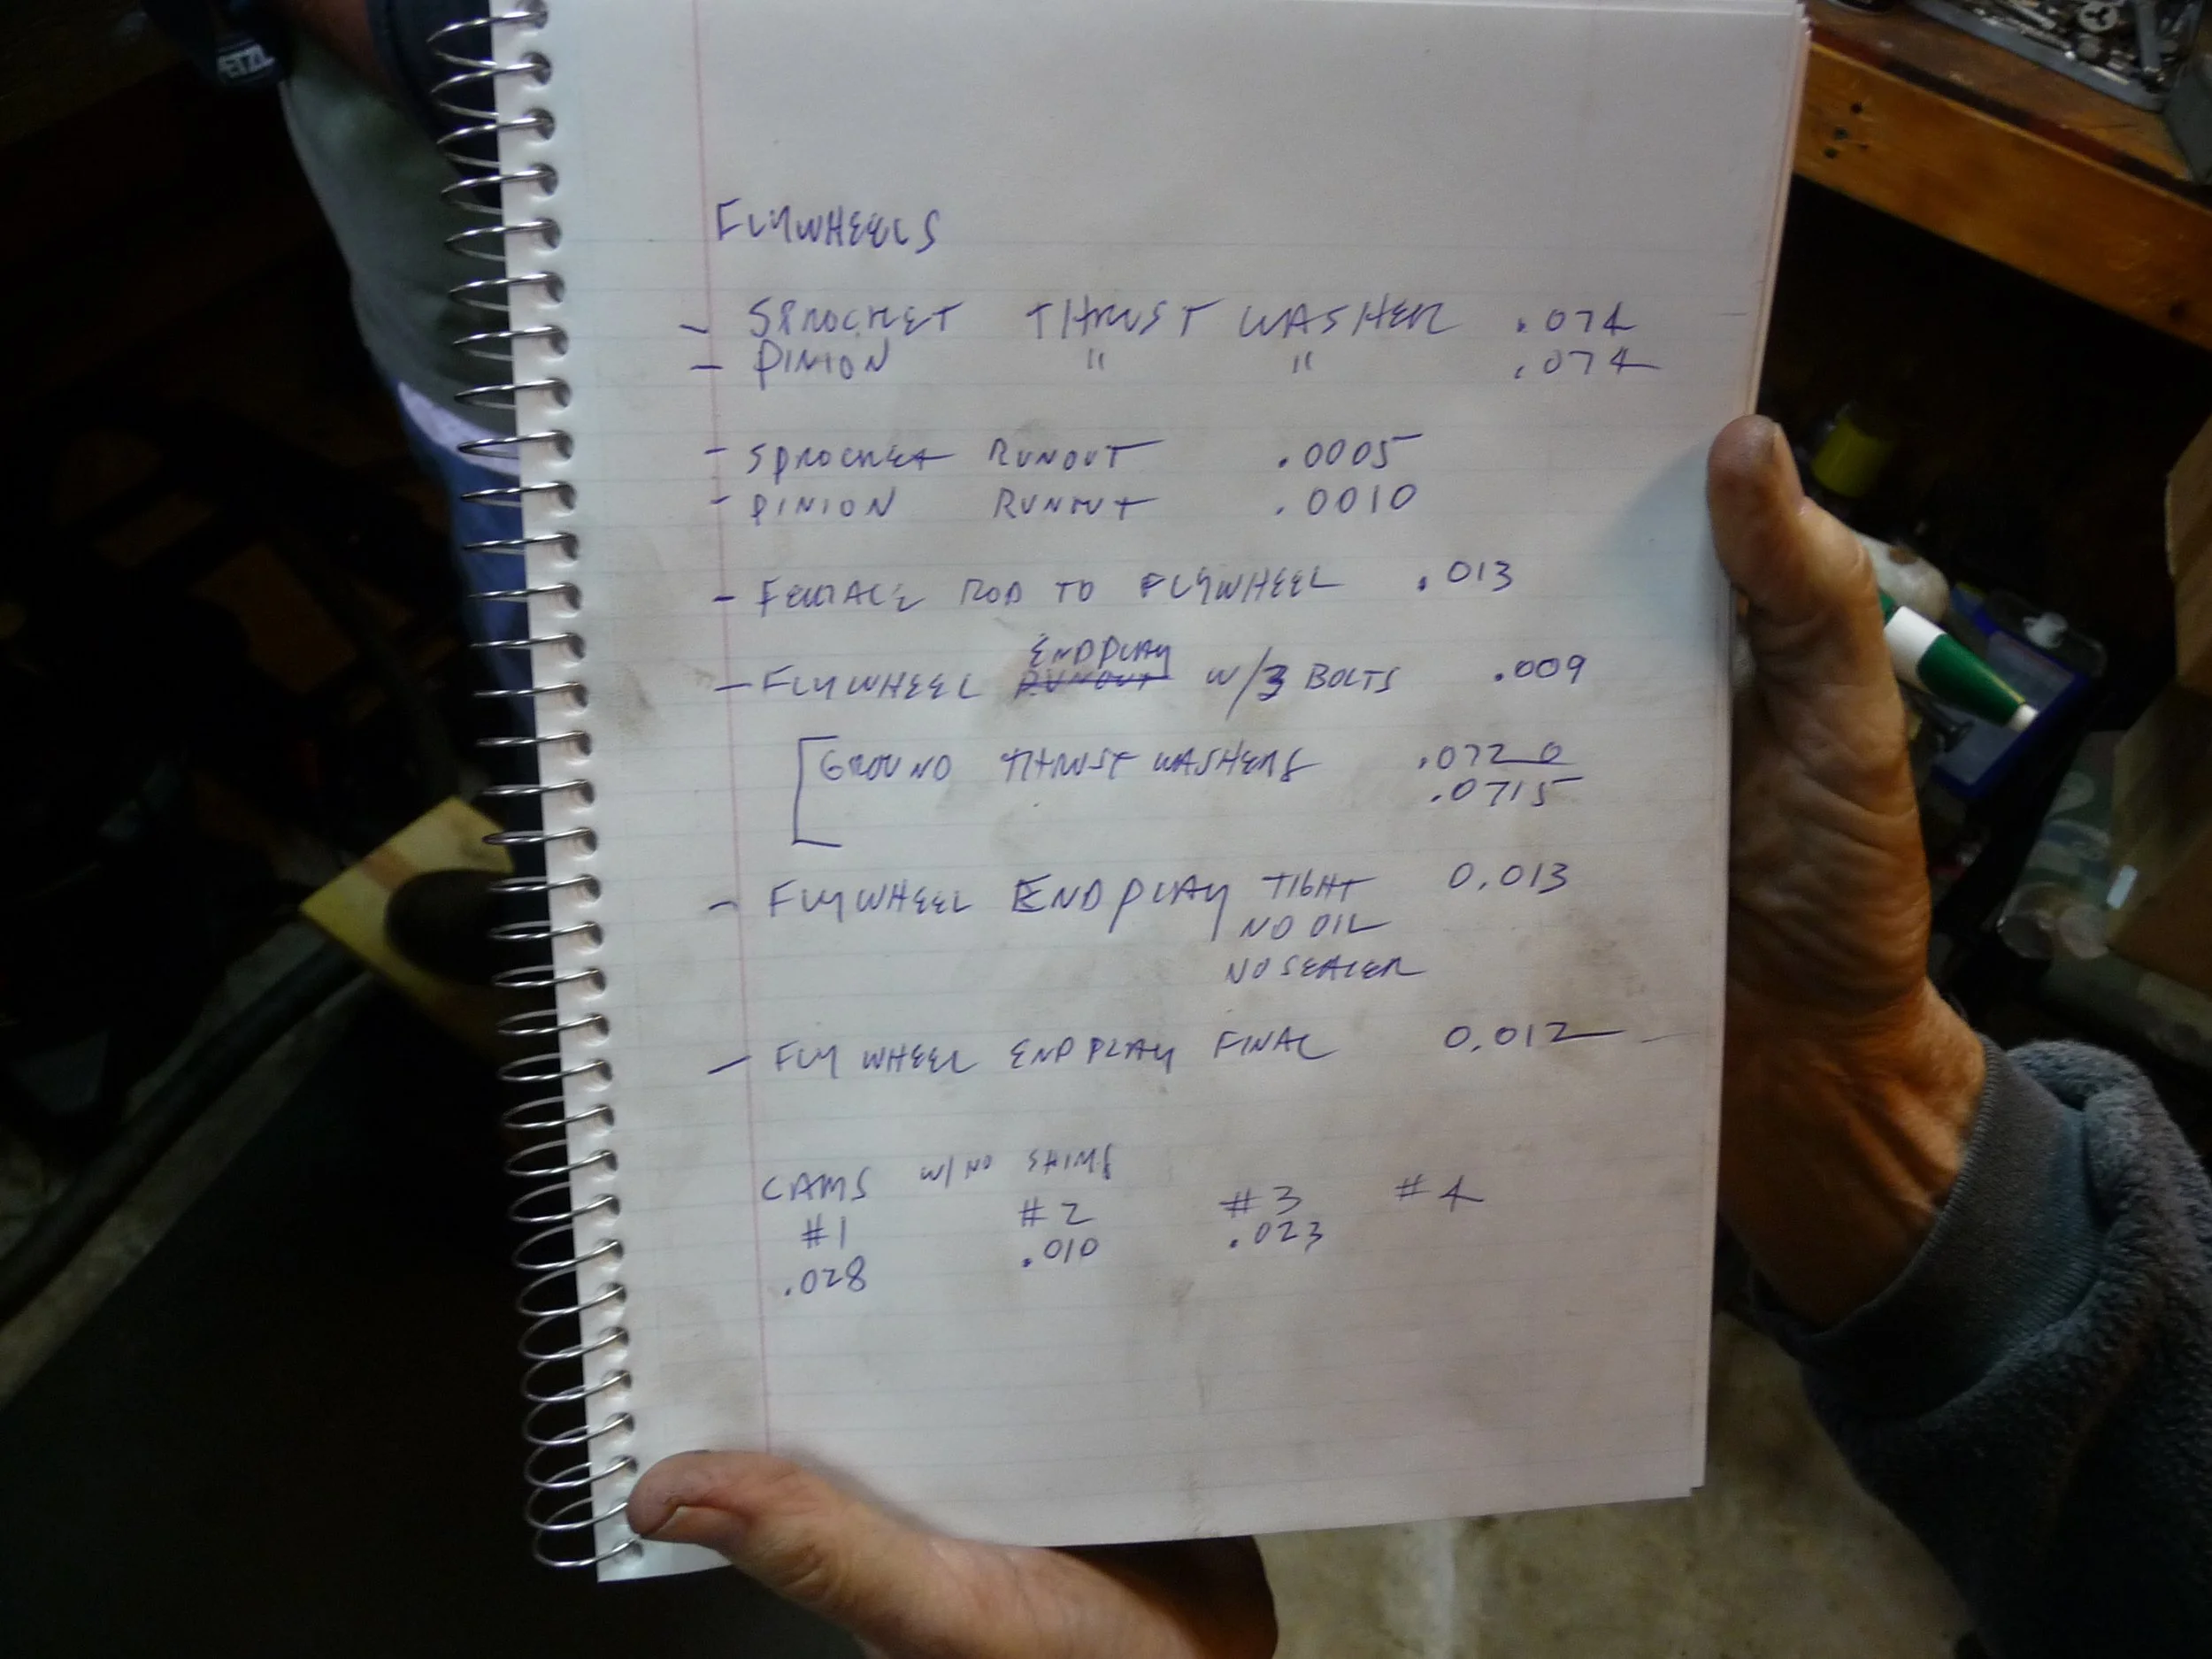 FLYWHEELS
- SPROCKET THRUST WASHER .074
- PINION " " .074
- SPROCKET RUNOUT .0005
- PINION RUNOUT .0010
- FEMALE ROD TO FLYWHEEL .013
ENDPLAY
- FLYWHEEL RUNOUT W/3 BOLTS .009
GROUND THRUST WASHERS .0720
.0715
- FLYWHEEL ENDPLAY TIGHT 0.013
NO OIL
NO SEALER
- FLYWHEEL ENDPLAY FINAL 0.012
CAMS W/NO SHIMS
#1 #2 #3 #4
.028 .010 .023